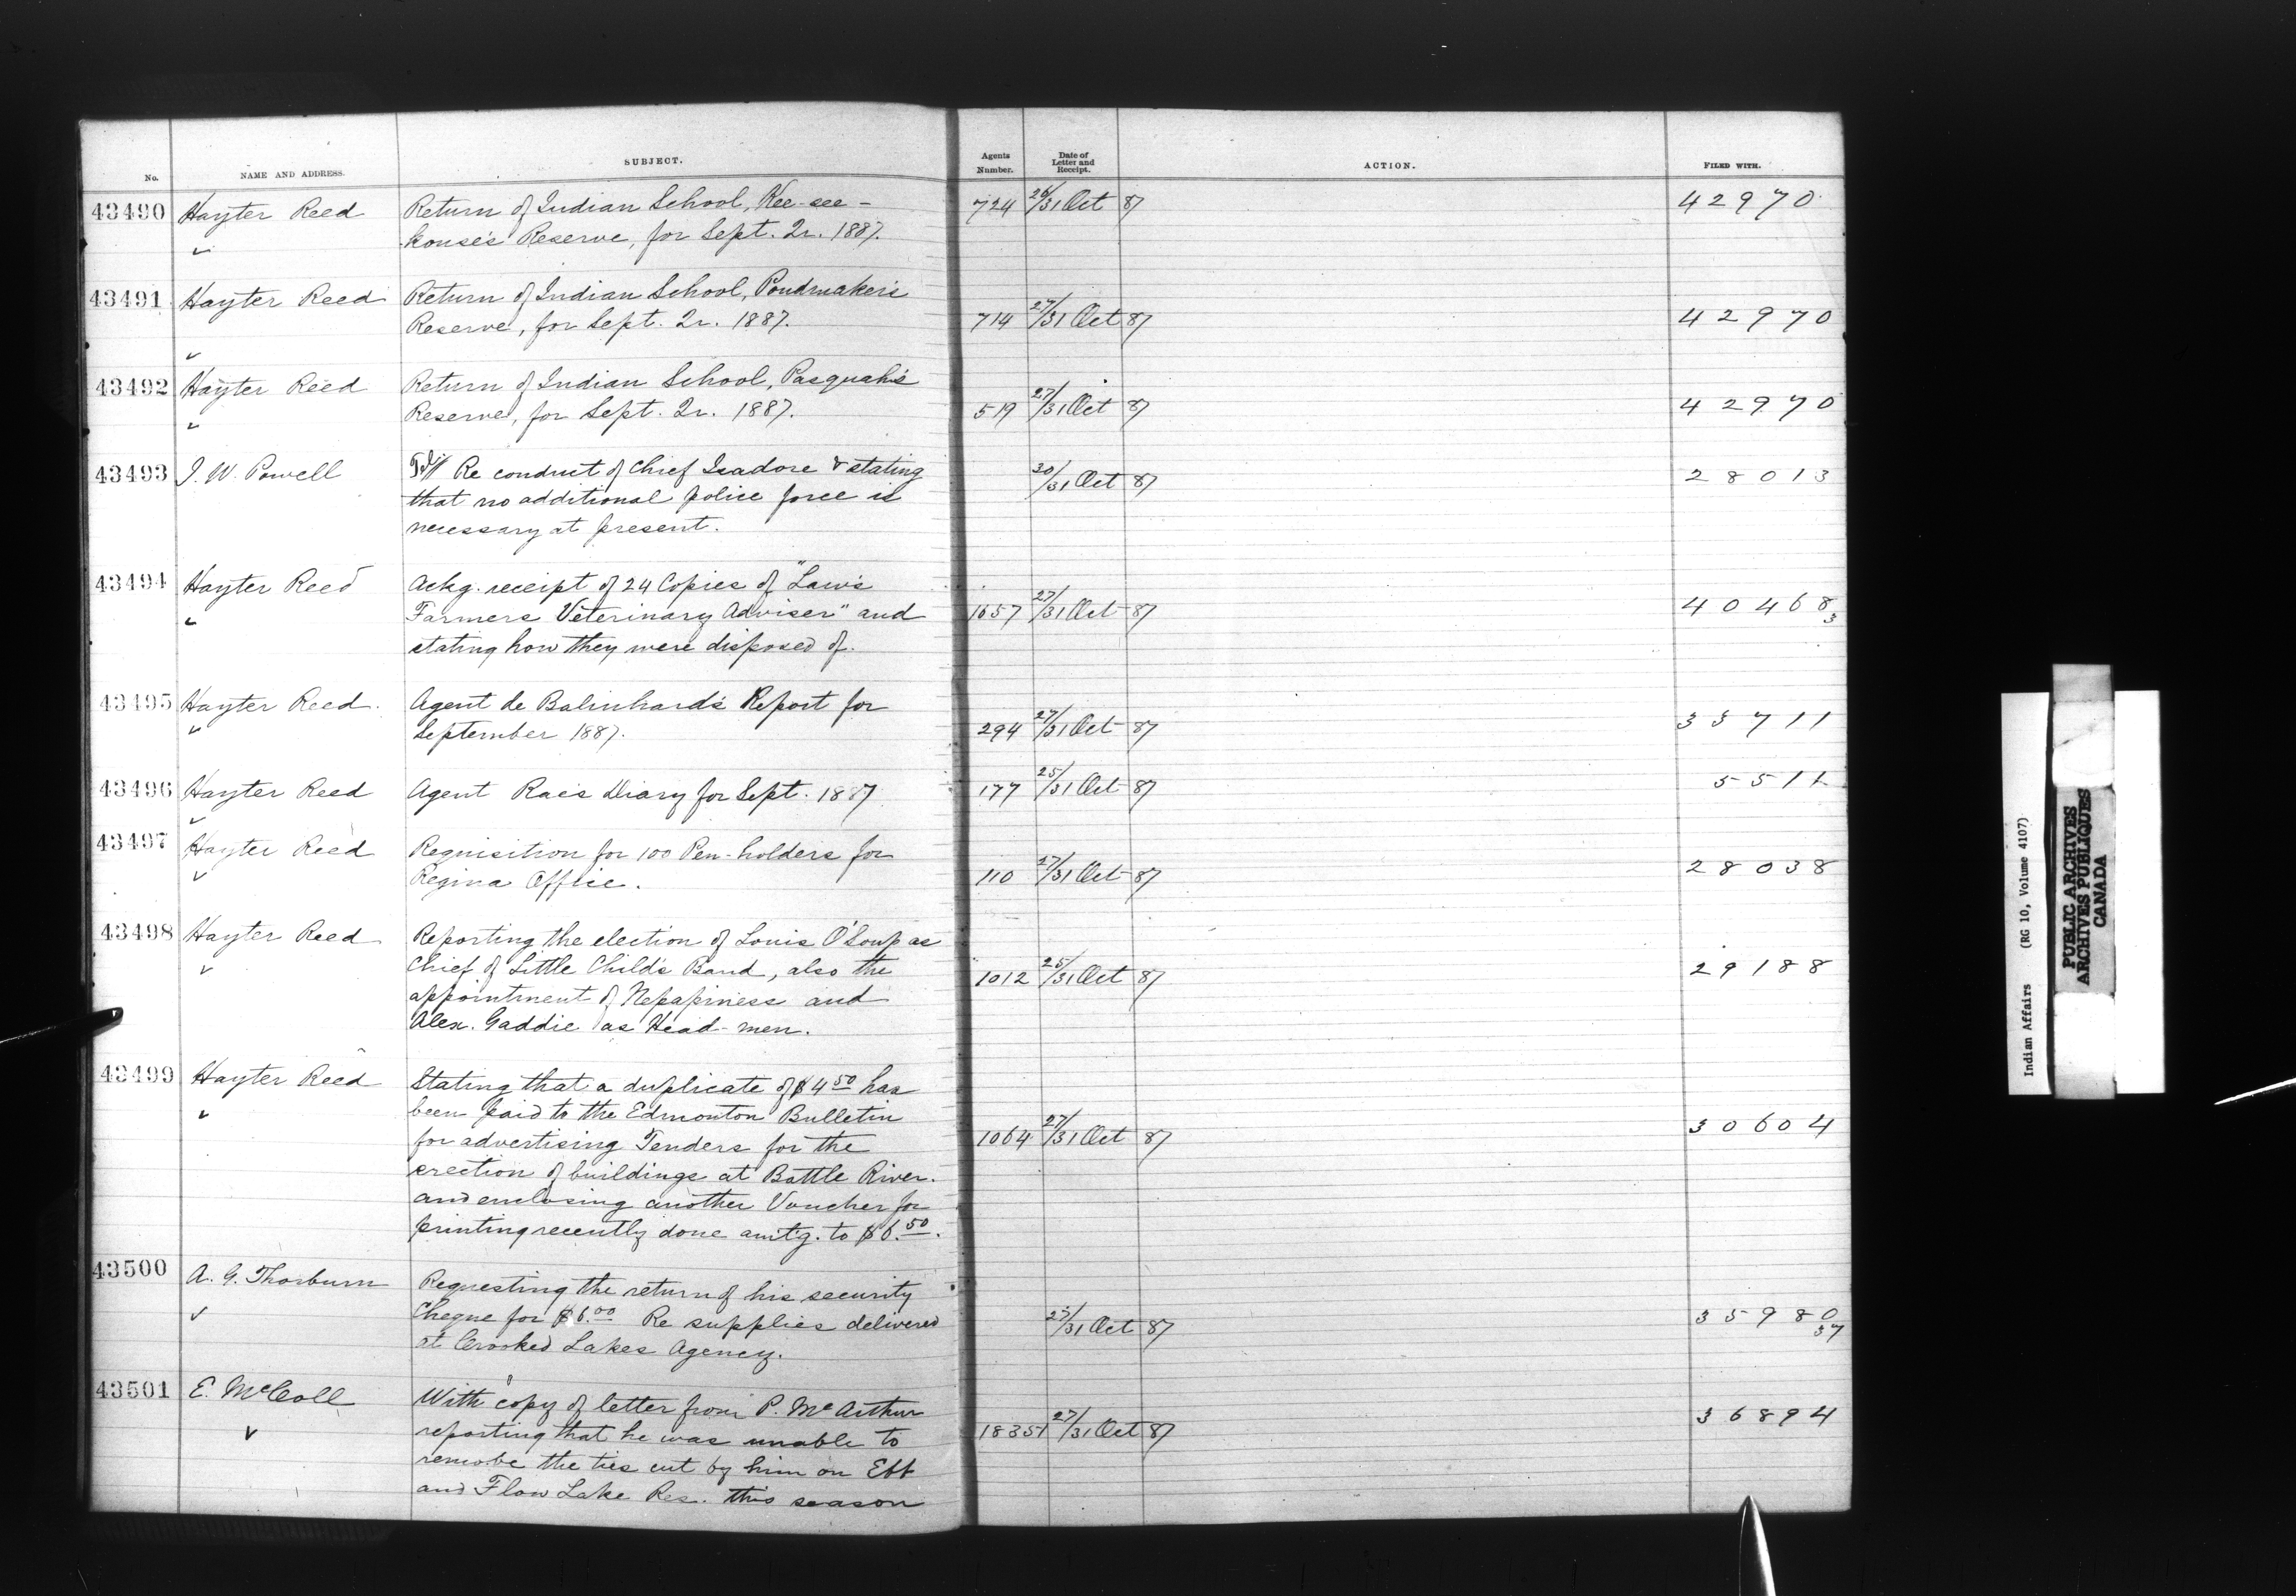 No. NAME AND ADDRESS. SUBJECT. Agents Number. Date of Letter and Receipt. ACTION. FILED WITH.
43490 Hayter Reed Return of Indian School, Kee-see- 724 26/31 Oct 87 42970
kouse's Reserve, for Sept. Qr. 1887.
43491 Hayter Reed Return of Indian School, Poudmaker's
Reserve, for Sept. Qr. 1887. 714 27/31 Oct 87 42970
43492 Hayter Reed Return of Indian School, Pasquah's
Reserve, for Sept. Qr. 1887. 519 27/31 Oct 87 42970
43493 I. W. Powell Re conduct of Chief Isadore & stating 30/31 Oct 87 28013
that no additional police force is
necessary at present.
43494 Hayter Reed Ackg. receipt of 24 Copies of "Law's
Farmers Veterinary Adviser" and 1657 27/31 Oct 87 40468 3
stating how they were disposed of.
43495 Hayter Reed. Agent de Balinhard's Report for
September 1887. 294 27/31 Oct 87 33711
43496 Hayter Reed Agent Rae's Diary for Sept. 1887 177 25/31 Oct 87
43497 Hayter Reed Requisition for 100 Pen-holders for
Regina Office. 110 27/31 Oct 87 28038
43498 Hayter Reed Reporting the election of Louis O'Soup as
Chief of Little Child's Band, also the 1012 25/31 Oct 87 29188
appointment of Nepapiness and
Alex. Gaddie as Head-men.
43499 Hayter Reed Stating that a duplicate of $4.50 has
been paid to the Edmonton Bulletin
for advertising Tenders for the 1064 27/31 Oct 87 30604
erection of buildings at Battle River.
and enclosing another Voucher for
printing recently done amt'g. to $6.50.
43500 A. G. Thorburn Requesting the return of his security
Cheque for $6.00 Re supplies delivered /31 Oct 87 35980 37
at Crooked Lakes Agency.
43501 E. McColl With copy of letter from P. McArthur
reporting that he was unable to 18351 27/31 Oct 87 36894
remove the ties cut by him on Ebb
and Flow Lake Res. this season
Indian Affairs (RG 10, Volume 4107)
PUBLIC ARCHIVES
ARCHIVES PUBLIQUES
CANADA